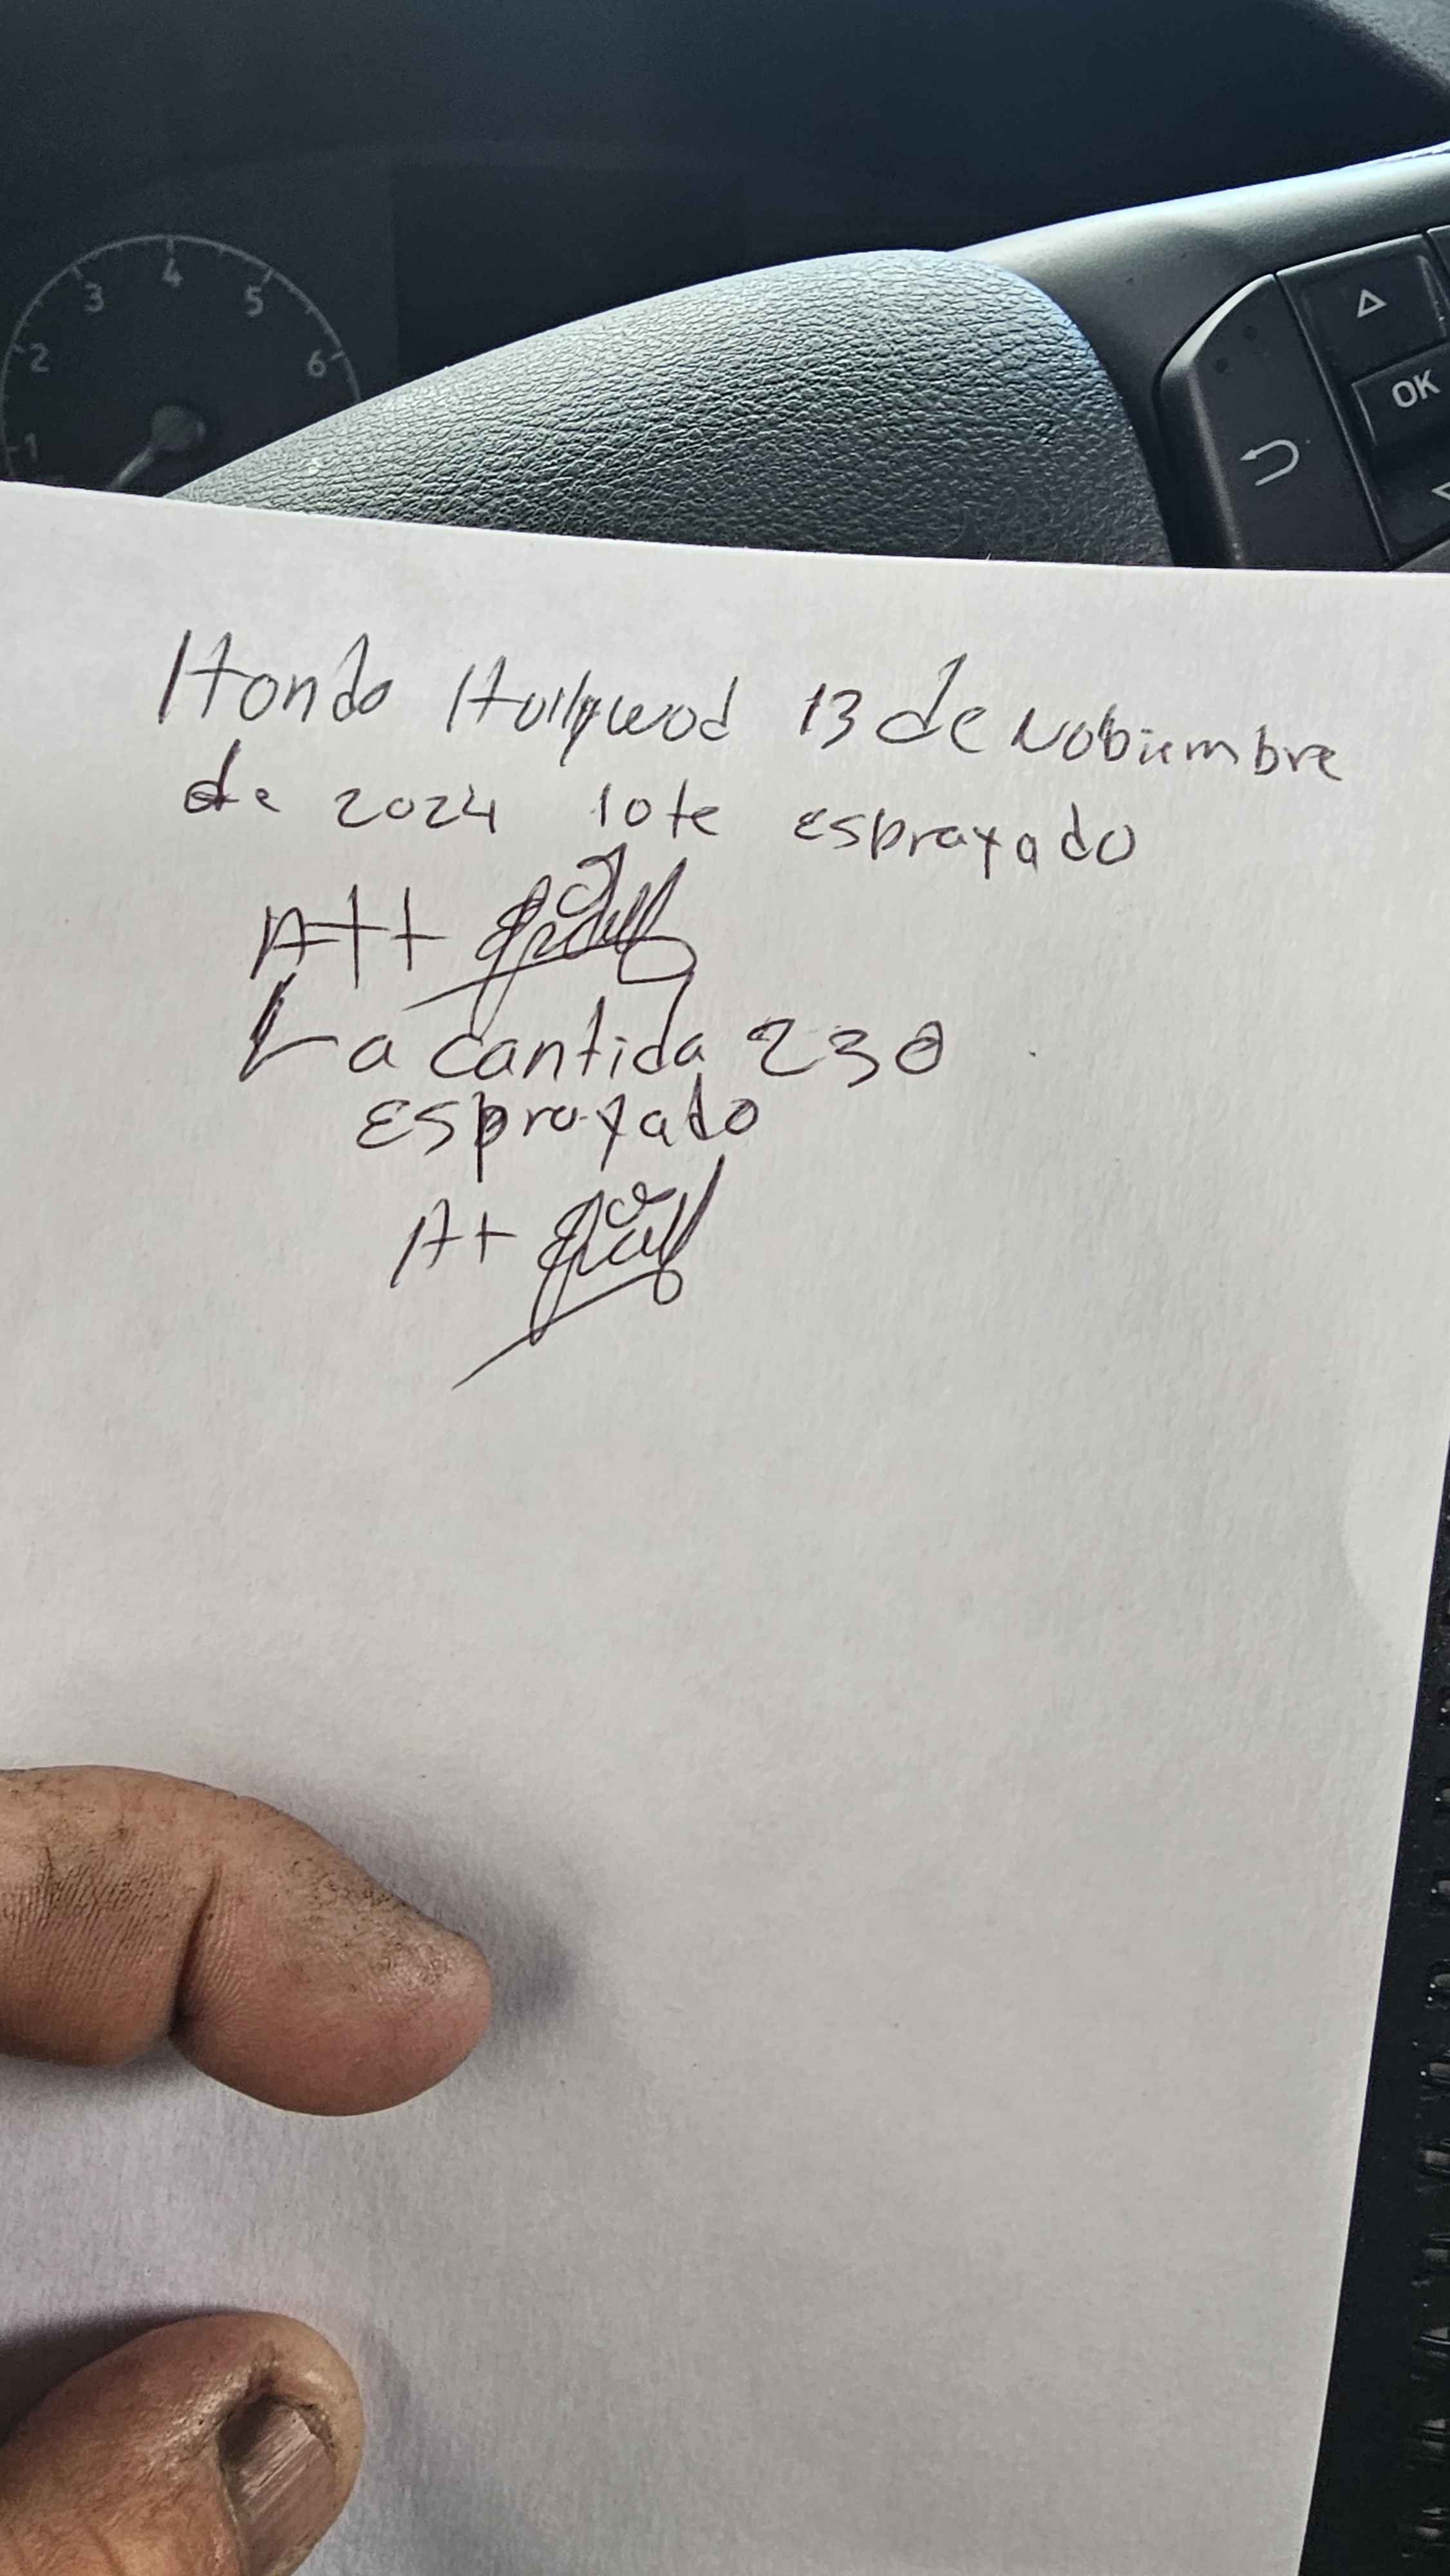 3 4 5
2 6
1
OK
Hondo Hollywod 13 de Nobiembre
de 2024 lote esprayado
Att
La cantida 230
esprayado
At